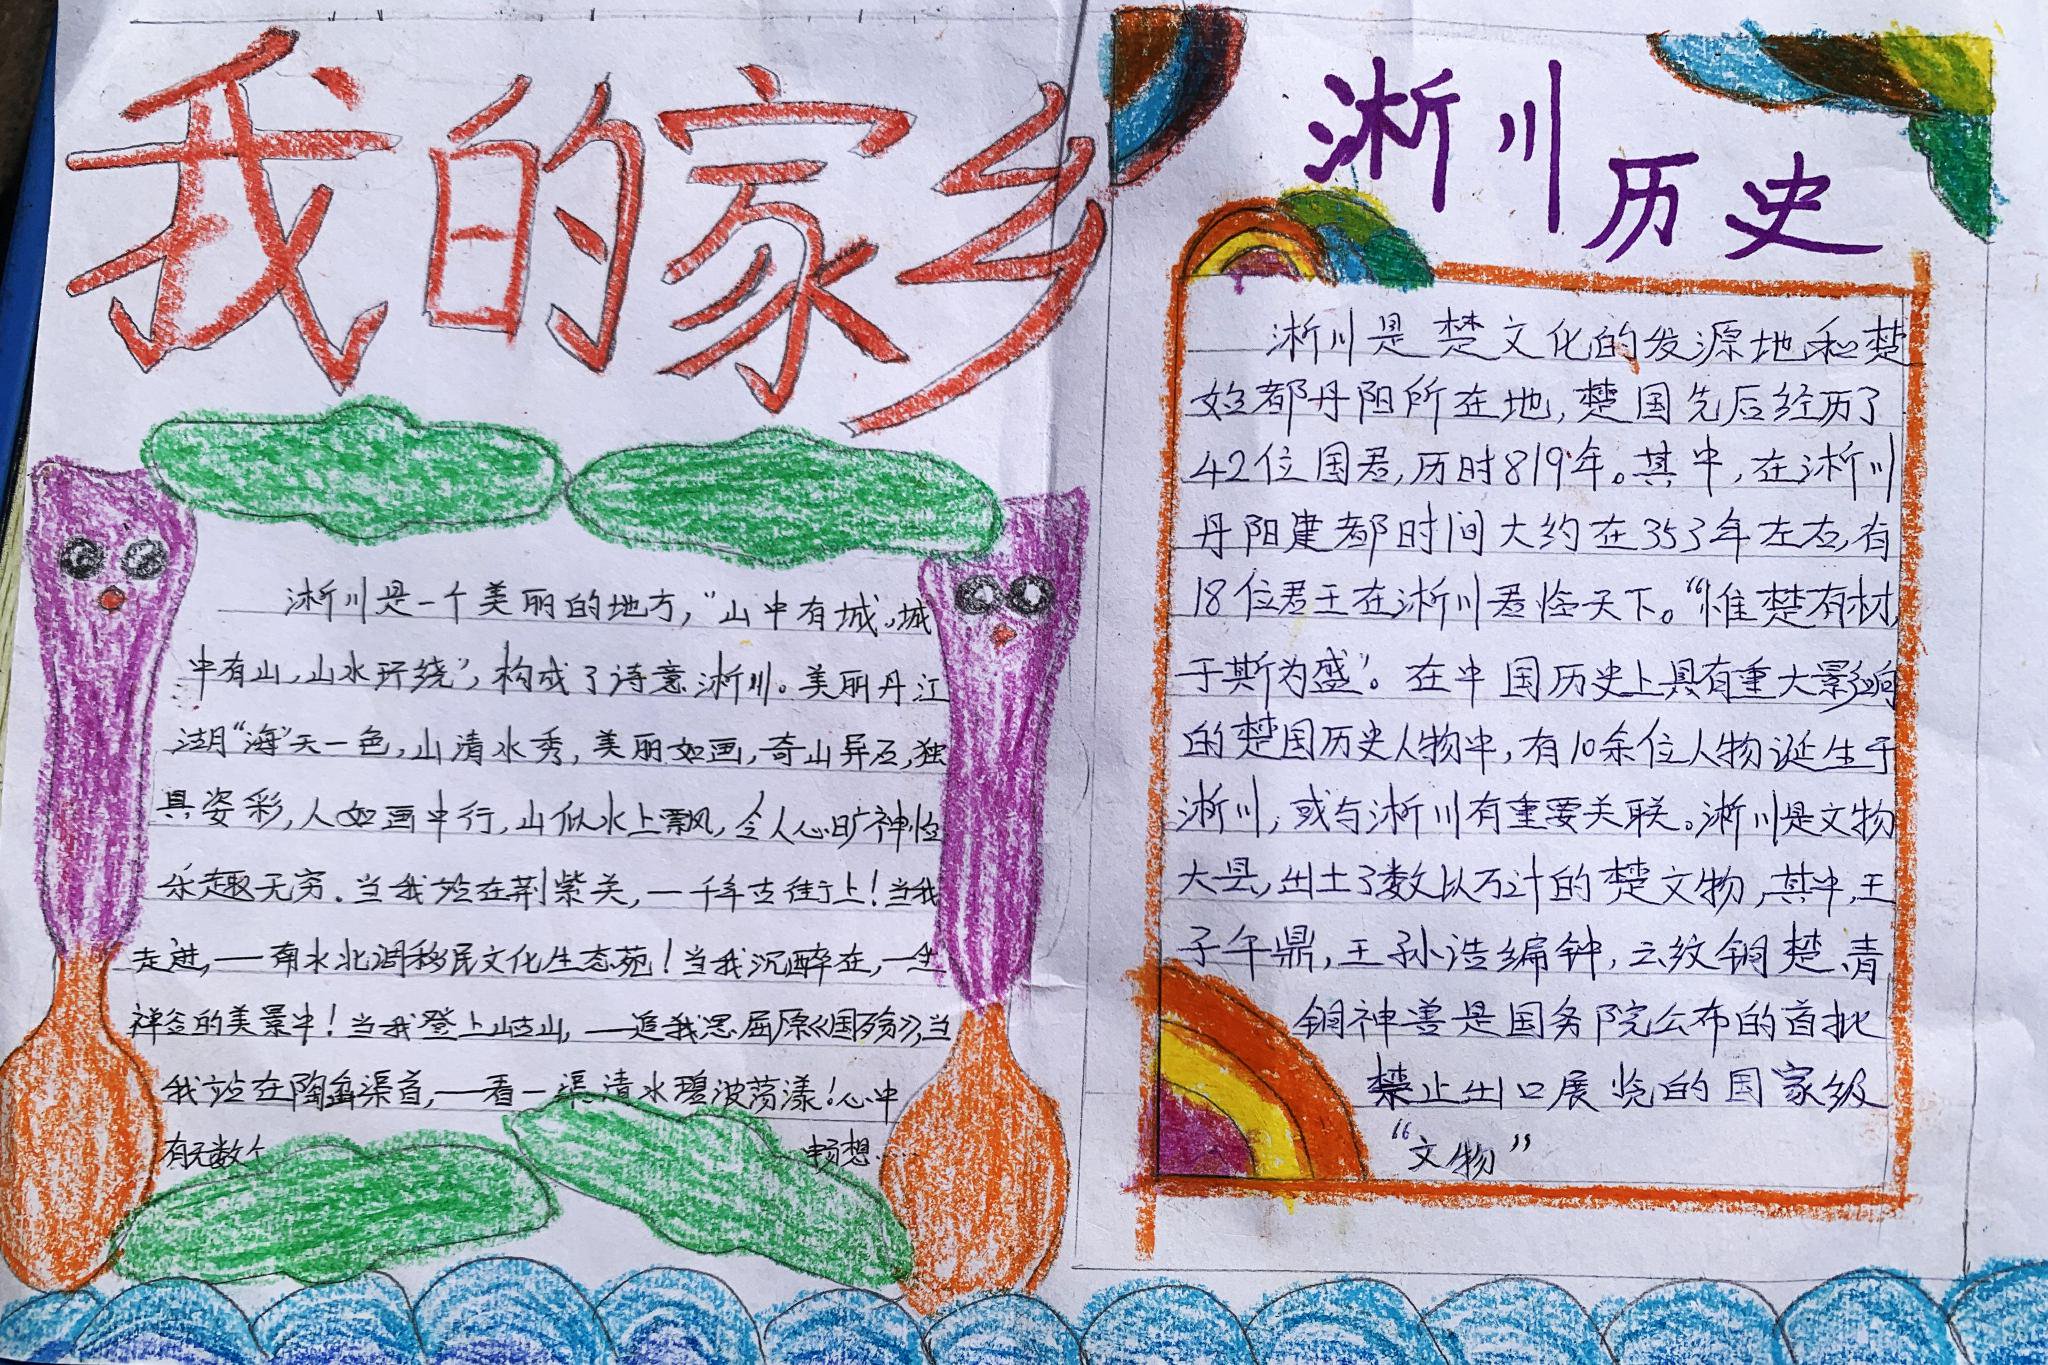 我的家乡
淅川是一个美丽的地方，“山中有城，城
中有山，山水环绕”，构成了诗意淅川。美丽丹江
湖“海”天一色，山清水秀，美丽如画，奇山异石，独
具姿彩，人如画中行，山似水上飘，令人心旷神怡
乐趣无穷。当我站在荆紫关，一千年古街上！当我
走进，一南水北调移民文化生态苑！当我沉醉在，一坐
禅谷的美景中！当我登上岵山，一追我思屈原《国殇》，当
我站在陶岔渠首，一看一渠清水碧波荡漾！心中
有无数个 畅想……
淅川
历史
淅川是楚文化的发源地和楚
始都丹阳所在地，楚国先后经历了
42位国君，历时819年。其中，在淅川
丹阳建都时间大约在353年左右，有
18位君王在淅川君临天下。“惟楚有材，
于斯为盛”。在中国历史上具有重大影响
的楚国历史人物中，有10余位人物诞生于
淅川，或与淅川有重要关联。淅川是文物
大县，出土了数以万计的楚文物，其中，王
子午鼎，王孙诰编钟，云纹铜楚、青
铜神兽是国务院公布的首批
禁止出口展览的国家级
“文物”